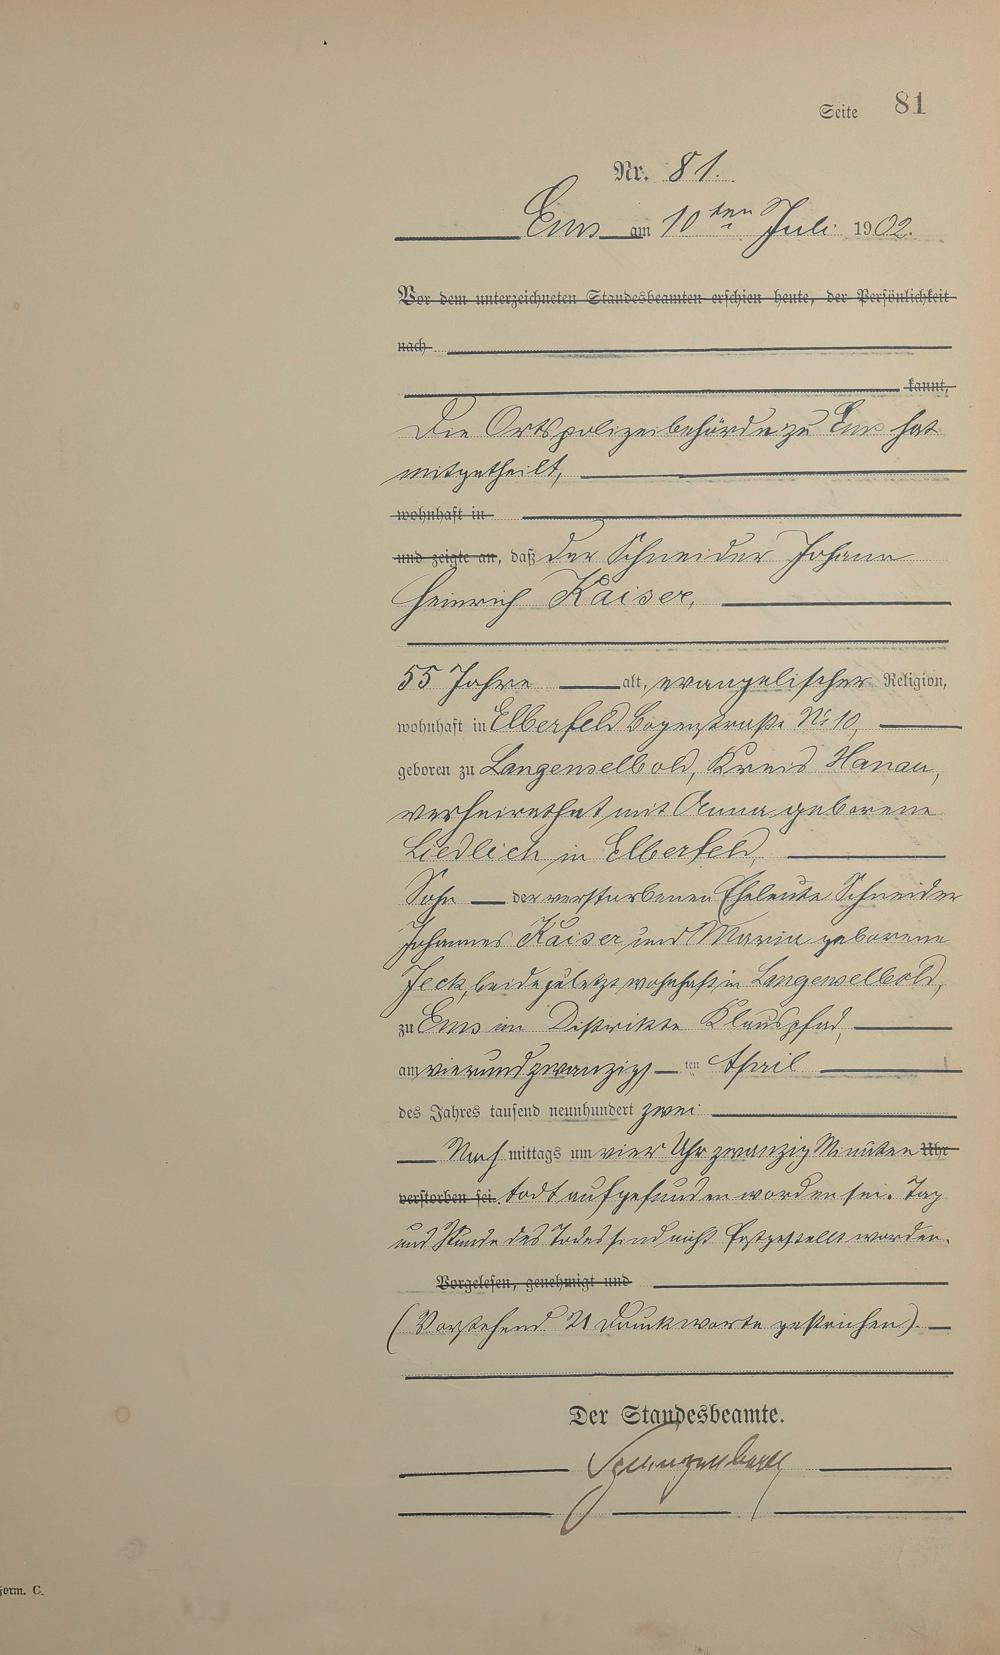 Seite 81
Nr. 81.
Ems am 10ten Juli 1902.
Vor dem unterzeichneten Standesbeamten erschien heute, der Persönlichkeit
nach
kannt,
Die Ortspolizeibehörde zu Ems hat
mitgetheilt,
wohnhaft in
und zeigte an, daß der Schneider Johann
Heinrich Kaiser,
55 Jahre alt, evangelischer Religion,
wohnhaft in Elberfeld Bogenstraße No 10,
geboren zu Langenselbold, Kreis Hanau,
verheirathet mit Anna geborene
Liedlich in Elberfeld,
Sohn der verstorbenen Eheleute Schneider
Johannes Kaiser und Maria geborene
Jeck, beide zuletzt wohnhaft in Langenselbold,
zu Ems im Distrikte Klauspfad,
am vierundzwanzigten April
des Jahres tausend neunhundert zwei
Nachmittags um vier Uhr zwanzig Minuten Uhr
verstorben sei. todt aufgefunden worden sei. Tag
und Stunde des Todes sind nicht festgestellt worden.
Vorgelesen, genehmigt und
(Vorstehend 21 Druckworte gestrichen).
Der Standesbeamte.
Form. C.